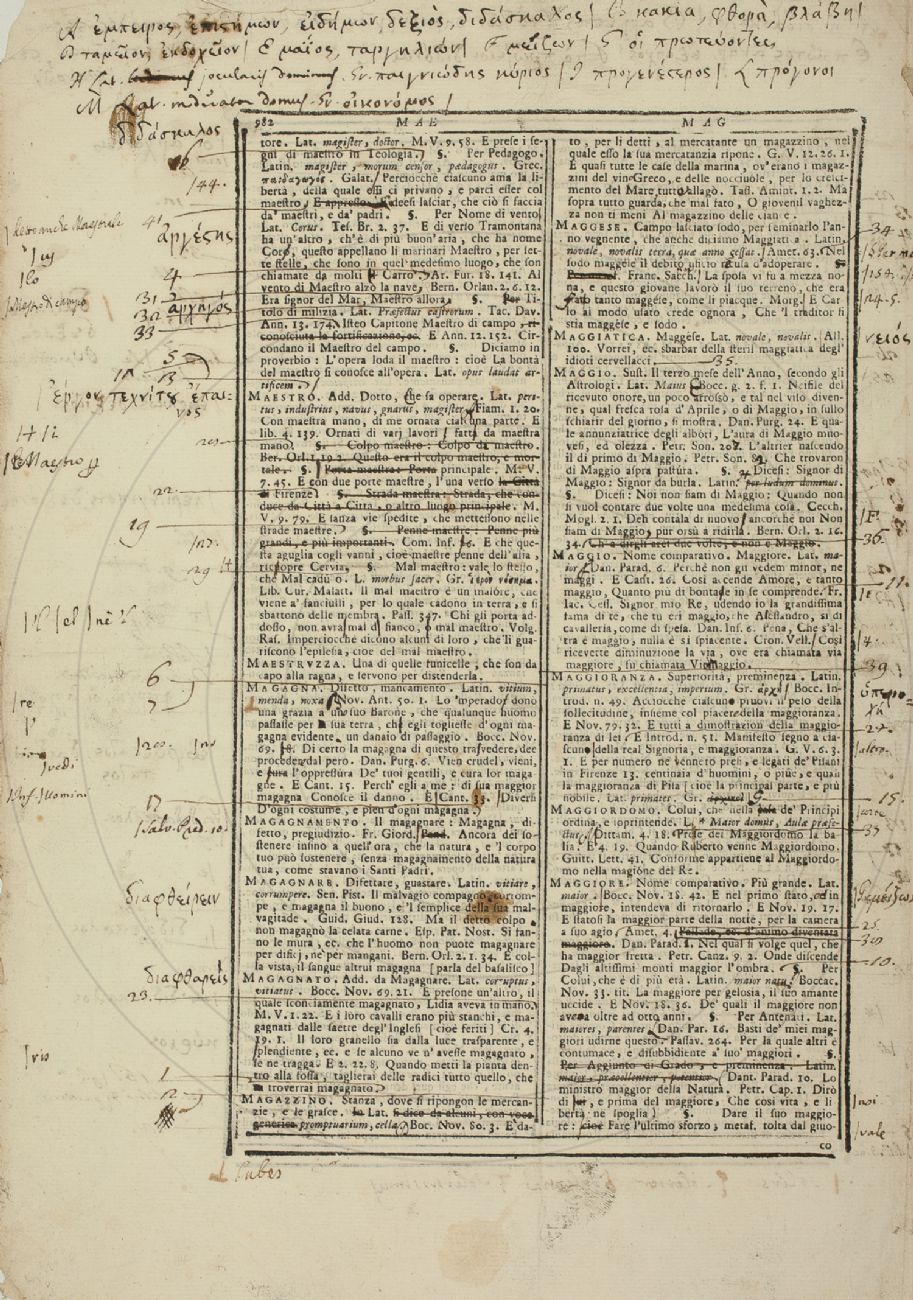 Α ἔμπειρος, ἐπιστήμων, εἰδήμων, δεξιός, διδάσκαλος| κακία, φθορὰ, βλάβη|
ταμεῖον, ἐκδοχεῖον| μαῖος, ταργηλιών| μείζων| οἱ πρωτεύοντες
Lat. jocularis dominus. παιγνιώδης κύριος| προγενέστερος| πρόγονοι
Lat. domus. οἰκονόμος|
διδάσκαλος
982 MAE MAG
tore. Lat. magister, doctor. M. V. 9. 58. E prese i se-
gni di maestro in Teologia. §. Per Pedagogo.
Latin. magister, morum censor, pædagogus. Grec.
παιδαγωγός. Galat. Perciocchè ciascuno ama la li-
bertà, della quale essi ci privano, e parci esser col
maestro. E appresso. deesi lasciar, che ciò si faccia
da' maestri, e da' padri. §. Per Nome di vento
Lat. Corus. Tes. Br. 2. 37. E di verso Tramontana
ha un'altro, ch'è di più buon'aria, che ha nome
Coro, questo appellano li marinari Maestro, per set-
te stelle, che sono in quel medesimo luogo, che son
chiamate da molti Carro. Ar. Fur. 18. 141. Al
vento di Maestro alzò la nave. Bern. Orlan. 2. 6. 12.
Era signor del Mar, Maestro allora. §. Per Ti-
tolo di milizia. Lat. Præfectus castrorum. Tac. Dav.
Ann. 13. 174. Isteo Capitone Maestro di campo, ri-
conosciuta la fortificazione, ec. E Ann. 12. 152. Cir-
condano il Maestro del campo. §. Diciamo in
proverbio: L'opera loda il maestro: cioè La bontà
del maestro si conosce all'opera. Lat. opus laudat ar-
tificem.
MAESTRO. Add. Dotto, che sa operare. Lat. peri-
tus, industrius, navus, gnarus, magister. Fiam. 1. 20.
Con maestra mano, di me ornata ciascuna parte. E
lib. 4. 139. Ornati di varj lavori fatti da maestra
mano. §. Colpo maestro: Colpo da maestro.
Ber. Orl. 1. 19. 2. Questo era il colpo maestro, e mor-
tale. §. Porta maestra: Porta principale. M. V.
7. 45. E con due porte maestre, l'una verso la Città
di Firenze. §. Strada maestra: Strada, che con-
duce da Città a Città, o altro luogo principale. M.
V. 9. 79. E sanza vie spedite, che mettessono nelle
strade maestre. §. Penne maestre: Penne più
grandi, e più importanti. Com. Inf. 16. E che que-
sta aguglia cogli vanni, cioè maestre penne dell'alia,
ricuopre Cervia. §. Mal maestro: vale lo stesso,
che Mal cadúo. L. morbus sacer. Gr. ἱερὸν νόσημα.
Lib. Cur. Malatt. Il mal maestro è un malore, che
viene a' fanciulli, per lo quale cadono in terra, e si
sbattono delle membra. Pass. 347. Chi gli porta ad-
dosso, non avrà mal di fianco, o mal maestro. Volg.
Ras. Imperciocchè dicono alcuni di loro, che'li gua-
riscono l'epilesia, cioè del mal maestro.
MAESTRVZZA. Una di quelle funicelle, che son da
capo alla ragna, e servono per distenderla.
MAGAGNA. Difetto, mancamento. Latin. vitium,
menda, noxa. Nov. Ant. 50. 1. Lo 'mperador donò
una grazia a un suo Barone, che qualunque huomo
passasse per la sua terra, che egli togliesse d'ogni ma-
gagna evidente, un danaio di passaggio. Bocc. Nov.
69. 18. Di certo la magagna di questo trasvedere, dee
procedere dal pero. Dan. Purg. 6. Vien crudel, vieni,
e cura l'oppressura De' tuoi gentili, e cura lor maga
gne. E Cant. 15. Perch' egli a me: di sua maggior
magagna Conosce il danno. E Cant. 33. Diversi
D'ogni costume, e pien d'ogni magagna.
MAGAGNAMENTO. Il magagnare: Magagna, di-
fetto, pregiudizio. Fr. Giord. Pred. Ancora dei so-
stenere insino a quell'ora, che la natura, e 'l corpo
tuo può sostenere, senza magagnamento della natura
tua, come stavano i Santi Padri.
MAGAGNARE. Difettare, guastare. Latin. vitiare,
corrumpere. Sen. Pist. Il malvagio compagno corrom-
pe, e magagna il buono, e 'l semplice della sua mal-
vagitade. Guid. Giud. 128. Ma il detto colpo
non magagnò la celata carne. Esp. Pat. Nost. Si fan-
no le mura, ec. che l'huomo non puote magagnare
per dificj, ne per mangani. Bern. Orl. 2. 1. 34. E col-
la vista, il sangue altrui magagna [parla del basalisco]
MAGAGNATO. Add. da Magagnare. Lat. corruptus,
vitiatus. Bocc. Nov. 69. 21. E presone un'altro, il
quale sconciamente magagnato, Lidia aveva in mano,
M. V. 1. 22. E i loro cavalli erano più stanchi, e ma-
gagnati dalle saette degl'Inglesi [cioè feriti] Cr. 4.
19. 1. Il loro granello sia dalla luce trasparente, e
splendiente, ec. e se alcuno ve n'avesse magagnato,
se ne tragga. E 2. 22. 8. Quando metti la pianta den-
tro alla fossa, taglierai delle radici tutto quello, che
vi troverrai magagnato.
MAGAZZINO. Stanza, dove si ripongon le mercan-
zie, e le grasce. In Lat. si dice da alcuni, con voce
generica promptuarium, cella. Boc. Nov. 80. 3. E da-
to, per li detti, al mercatante un magazzino, nel
quale esso la sua mercatanzia ripone. G. V. 12. 26. 1.
E quasi tutte le case della marina, ov'erano i magaz-
zini del vino Greco, e delle nocciuole, per lo cresci-
mento del Mare, tutto allagò. Tass. Amint. 1. 2. Ma
sopra tutto guarda, che mal fato, O giovenil vaghez-
za non ti meni Al magazzino delle ciance.
MAGGESE. Campo lasciato sodo, per seminarlo l'an-
no vegnente, che anche diciamo Maggiatica. Latin.
novale, novalis terra, quæ anno cessat. Amet. 63. Nel
sodo maggese il debito uficio recusa d'adoperare. §.
Franc. Sacch. La sposa vi fu a mezza no-
na, e questo giovane lavorò il suo terreno, che era
stato tanto maggese, come li piacque. Morg. E Car
lo al modo usato crede ognora, Che 'l traditor si
stia maggese, e sodo.
MAGGIATICA. Maggese. Lat. novale, novalis. All.
100. Vorrei, ec. sbarbar della steril maggiatica degl'
idioti cervellacci
MAGGIO. Sust. Il terzo mese dell'Anno, secondo gli
Astrologi. Lat. Maius. Bocc. g. 2. f. 1. Neifile del
ricevuto onore, un poco arrossò, e tal nel viso diven-
ne, qual fresca rosa d'Aprile, o di Maggio, in sullo
schiarir del giorno, si mostra. Dan. Purg. 24. E qua-
le annunziatrice degli albori, L'aura di Maggio muo-
vesi, ed olezza. Petr. Son. 208. L'altrier nascendo
il dì primo di Maggio. Petr. Son. 82. Che trovaron
di Maggio aspra pastura. §. Dicesi: Signor di
Maggio: Signor da burla. Latin. per ludum dominus.
§. Dicesi: Noi non siam di Maggio: Quando non
si vuol contare due volte una medesima cosa. Cecch.
Mogl. 2. 1. Deh contala di nuovo ancorchè noi Non
siam di Maggio, pur osù a ridirla. Bern. Orl. 2. 16.
34. Ch'a dirgli arei due volte, e non è Maggio.
MAGGIO. Nome comparativo. Maggiore. Lat. ma-
ior. Dan. Parad. 6. Perchè non gli vedem minor, ne
maggi. E Cast. 26. Così accende Amore, e tanto
maggio, Quanto più di bontade in se comprende. Fr.
Iac. Cess. Signor mio Re, udendo io la grandissima
fama di te, che tu eri maggio, che Alessandro, sì di
cavalleria, come di spesa. Dan. Inf. 6. Pena, Che s'al-
tra è maggio, nulla è sì spiacente. Cron. Vell. Così
ricevette diminuzione la via, ove era chiamata via
maggiore, fu chiamata Viamaggio.
MAGGIORANZA. Superiorità, preminenza. Latin.
primatus, excellentia, imperium. Gr. ἀρχή. Bocc. In-
trod. n. 49. Acciocchè ciascuno pruovi il peso della
sollecitudine, insieme col piacere della maggioranza.
E Nov. 79. 32. E tutti a dimostrazion della maggio-
ranza di lei. E Introd. n. 51. Manifesto segno a cia-
scuno della real Signoria, e maggioranza. G. V. 6. 3.
1. E per numero ne vennero presi, e legati de' Pisani
in Firenze 13. centinaia d'huomini, o piùe, e quasi
la maggioranza di Pisa [cioè la principal parte, e più
nobile. Lat. primates. Gr. ἀρχικοί.
MAGGIORDOMO. Colui, che nella casa de' Principi
ordina, e soprintende. L. Maior domus, Aulæ præfe-
ctus. Dittam. 4. 18. Prese del Maggiordomo la ba-
lìa. E 4. 19. Quando Ruberto venne Maggiordomo.
Guitt. Lett. 41. Conforme appartiene al Maggiordo-
mo nella magione del Re.
MAGGIORE. Nome comparativo. Più grande. Lat.
maior. Bocc. Nov. 18. 42. E nel primo stato, ed in
maggiore, intendeva di ritornarlo. E Nov. 19. 17.
E statosi la maggior parte della notte, per la camera
a suo agio. Amet. 4. Pallade, ec. d'animo diventata
maggiore. Dan. Parad. 1. Nel qual si volge quel, che
ha maggior fretta. Petr. Canz. 9. 2. Onde discende
Dagli altissimi monti maggior l'ombra. §. Per
Colui, che è di più età. Latin. maior natu. Boccac.
Nov. 33. tit. La maggiore per gelosia, il suo amante
uccide. E Nov. 18. 36. De' quali il maggiore non
aveva oltre ad otto anni. §. Per Antenati. Lat.
maiores, parentes. Dan. Par. 16. Basti de' miei mag-
giori udirne questo. Passav. 264. Per la quale altri è
contumace, e disubbidiente a' suo' maggiori. §.
Per Aggiunto di Grado, e preminenza. Latin.
maior, præcellentior, potentior. Dant. Parad. 10. Lo
ministro maggior della Natura. Petr. Cap. 1. Dirò
di noi, e prima del maggiore, Che così vita, e li
bertà ne spoglia. §. Dare il suo maggio-
re: cioè Fare l'ultimo sforzo, metaf. tolta dal giuo-
co
16
144.
41
4
31
32
33
5
13
ἔργον τεχνίτου ἐπαι-
νος
22
19
29
6
7
|vedi
διαφθείρειν
διαφθαρείς
23
1
2
34
νειός
35
36
11
39
15.
33
25
30
10.
|noi
|vale